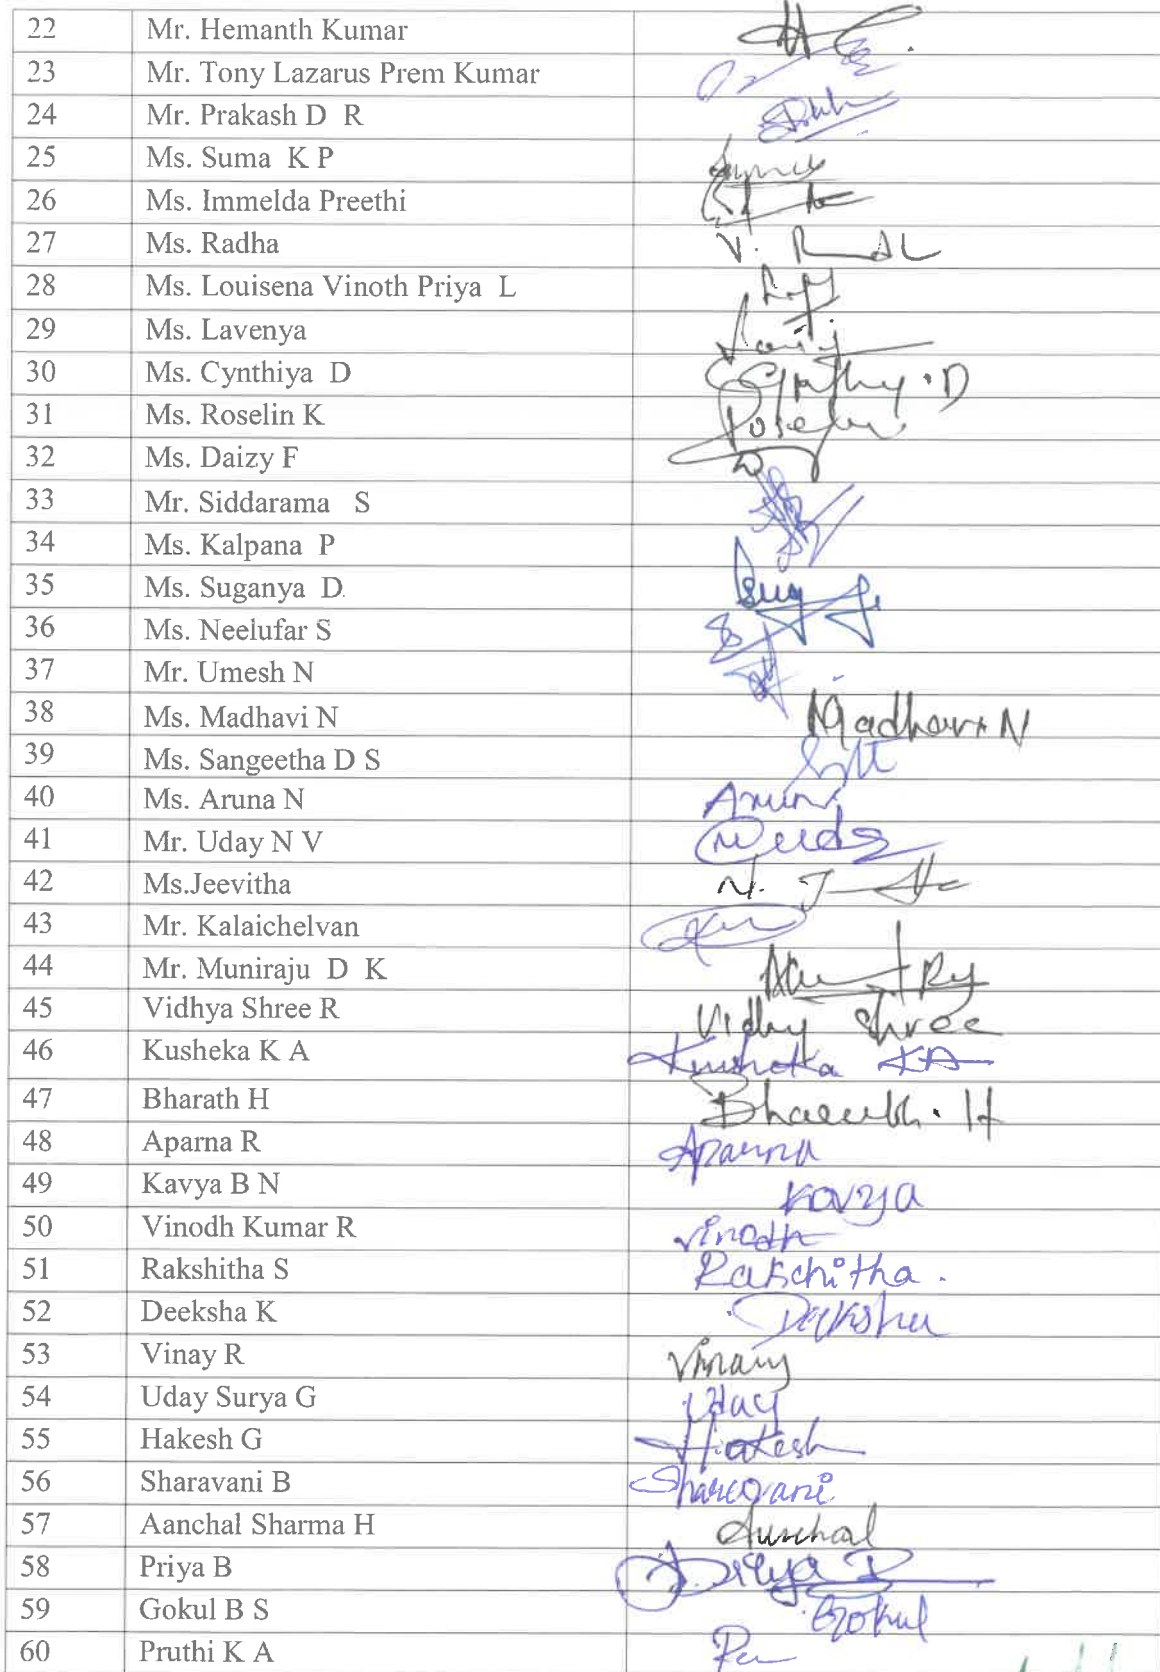 22 Mr. Hemanth Kumar
23 Mr. Tony Lazarus Prem Kumar
24 Mr. Prakash D R
25 Ms. Suma K P
26 Ms. Immelda Preethi
27 Ms. Radha
28 Ms. Louisena Vinoth Priya L
29 Ms. Lavenya
30 Ms. Cynthiya D
31 Ms. Roselin K
32 Ms. Daizy F
33 Mr. Siddarama S
34 Ms. Kalpana P
35 Ms. Suganya D
36 Ms. Neelufar S
37 Mr. Umesh N
38 Ms. Madhavi N Madhavi N
39 Ms. Sangeetha D S
40 Ms. Aruna N
41 Mr. Uday N V
42 Ms.Jeevitha
43 Mr. Kalaichelvan
44 Mr. Muniraju D K
45 Vidhya Shree R Vidhy Shree
46 Kusheka K A Kusheka KA
47 Bharath H
48 Aparna R Aparna
49 Kavya B N Kavya
50 Vinodh Kumar R Vinodh
51 Rakshitha S Rakschitha .
52 Deeksha K
53 Vinay R Vinay
54 Uday Surya G Uday
55 Hakesh G Hakesh
56 Sharavani B Sharavani
57 Aanchal Sharma H
58 Priya B
59 Gokul B S Gokul
60 Pruthi K A